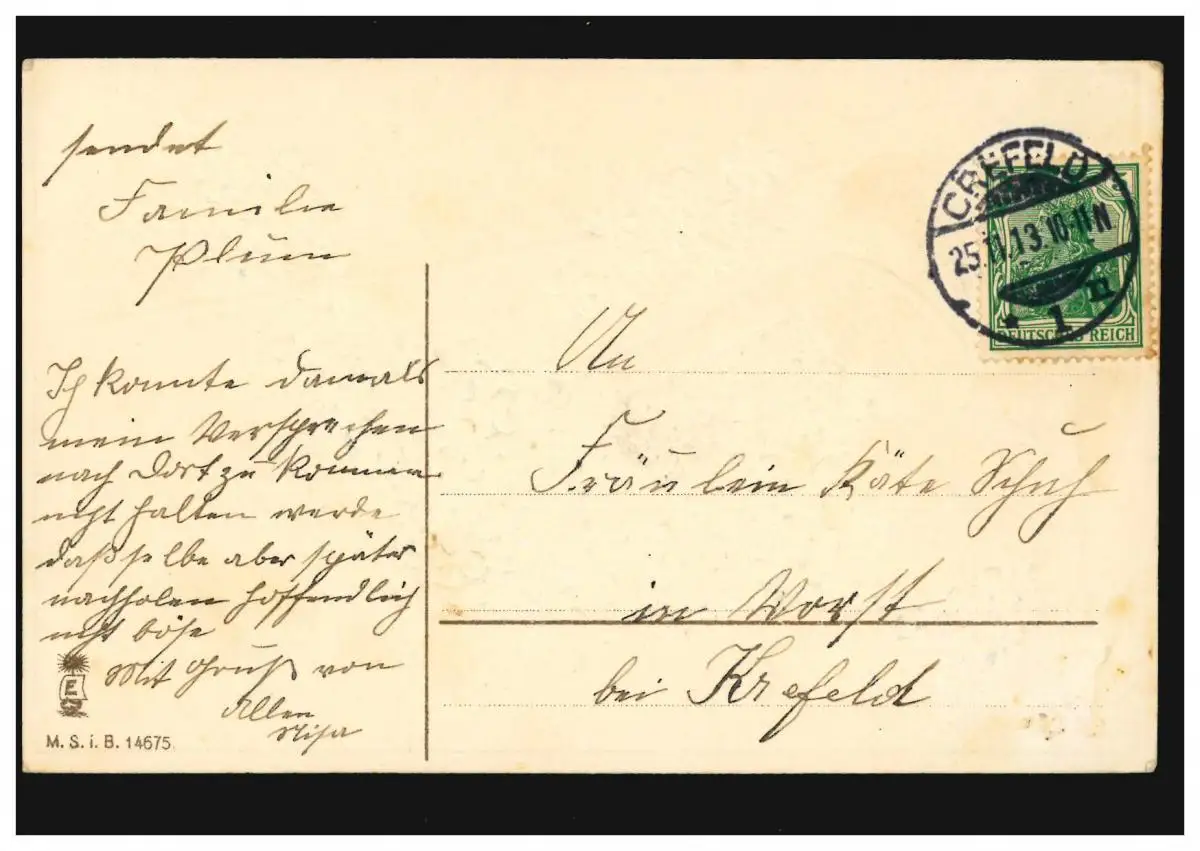 sendet
Familie
Plum
Ich konnte damals
mein Versprechen
nach dort zu kommen
nicht halten werde
daßselbe aber später
nachholen hoffendlich
nicht böse
Mit Gruß von
Allen
M. S. i. B. 14675
CREFELD
25.11.13 10-11N
* 1 n
DEUTSCHES REICH
An
Fräulein Käte Schuh
in Vorst
bei Krefeld